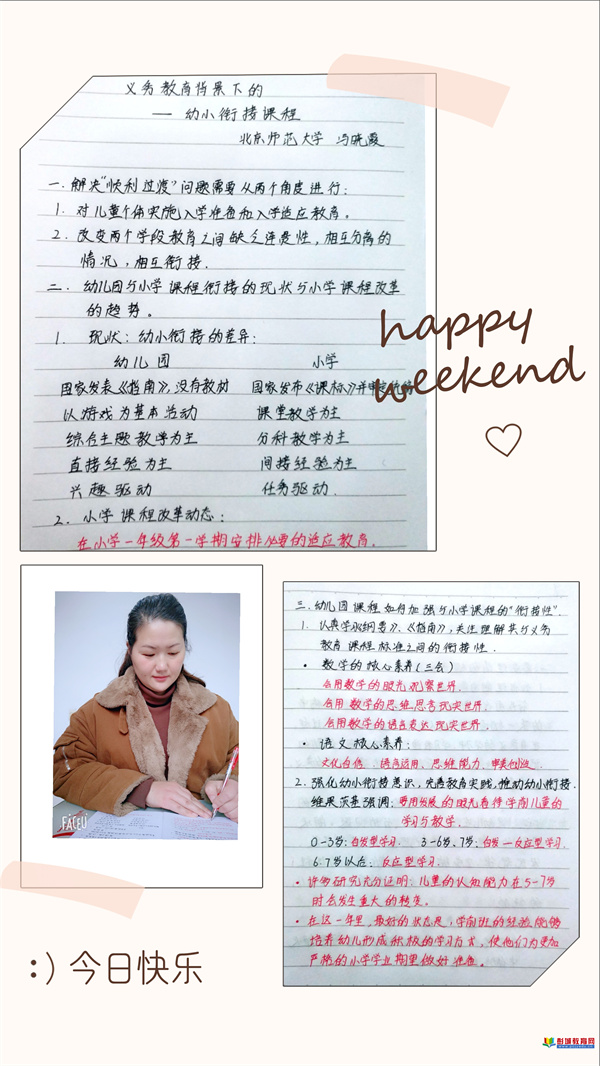 义务教育背景下的
— 幼小衔接课程
北京师范大学 冯晓霞
一.解决"顺利过渡"问题需要从两个角度进行:
1. 对儿童个体实施入学准备和入学适应教育。
2. 改变两个学段教育之间缺乏连贯性,相互分离的
情况,相互衔接.
二. 幼儿园与小学课程衔接的现状与小学课程改革
的趋势。
1. 现状:幼小衔接的差异:
幼儿园 小学
国家发表《指南》,没有教材 国家发布《课标》并审定教材
以游戏为基本活动 课堂教学为主
综合主题教学为主 分科教学为主
直接经验为主 间接经验为主
兴趣驱动 任务驱动.
2. 小学课程改革动态:
在小学一年级第一学期安排必要的适应教育.
happy
weekend
三.幼儿园课程如何加强与小学课程的"衔接性".
1. 认真学习《纲要》、《指南》,关注理解其与义务
教育课程标准之间的衔接性.
• 数学的核心素养(三会)
会用数学的眼光观察世界.
会用数学的思维思考现实世界.
会用数学的语言表达现实世界.
• 语文核心素养:
文化自信、语言运用、思维能力、审美创造.
2. 强化幼小衔接意识,完善教育实践,推动幼小衔接.
维果茨基强调:要用发展的眼光看待学前儿童的
学习与教学.
0-3岁:自发型学习. 3-6岁、7岁:自发—反应型学习.
6.7岁以后:反应型学习.
• 许多研究充分证明:儿童的认知能力在5-7岁
时会发生重大的转变。
• 在这一年里,最好的状态是,学前班的经验能够
培养幼儿形成积极的学习方式,使他们为更加
严格的小学学业期望做好准备。
FACEU
:) 今日快乐
彭城教育网